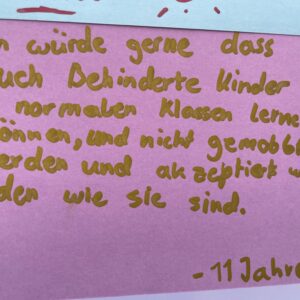 ich würde gerne dass
auch Behinderte Kinder
normalen Klassen lernen
können, und nicht gemobbt
werden und akzeptiert
werden wie sie sind.
- 11 Jahre